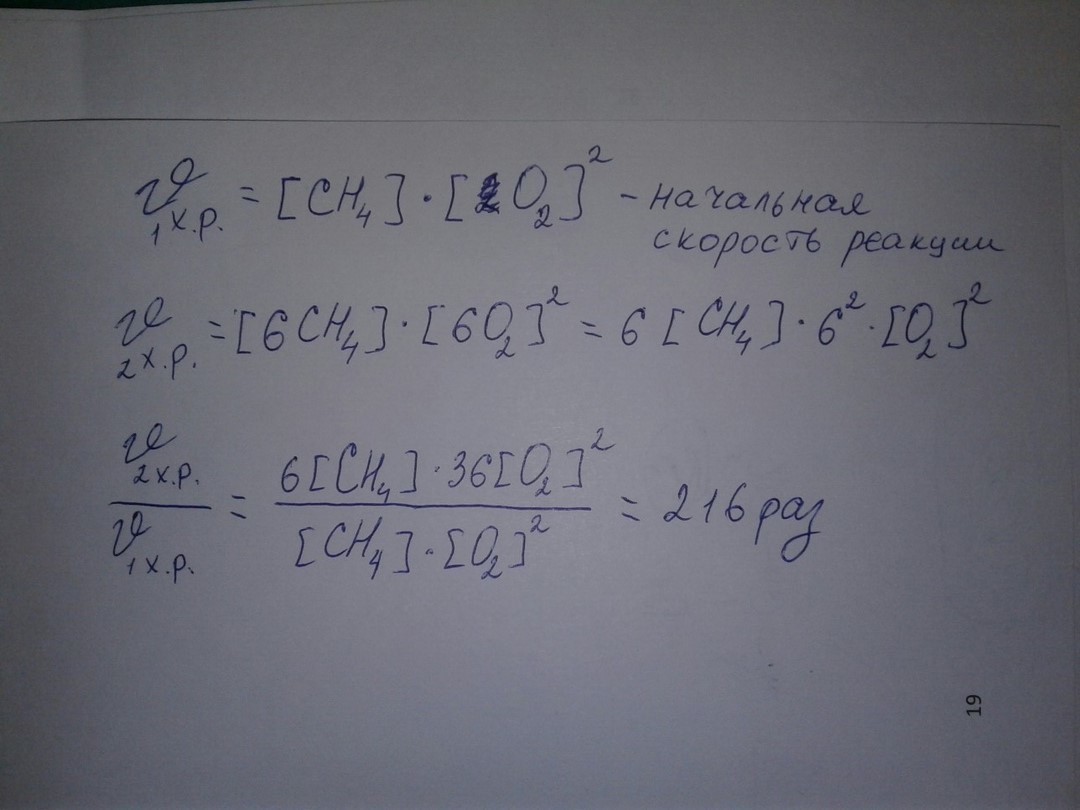 𝑣₁ х.р. = [CH₄] · [O₂]² – начальная
скорость реакции
𝑣₂ х.р. = [6CH₄] · [6O₂]² = 6 [CH₄] · 6² · [O₂]²
𝑣₂ х.р. / 𝑣₁ х.р. = 6[CH₄] · 36[O₂]² / [CH₄] · [O₂]² = 216 раз
19